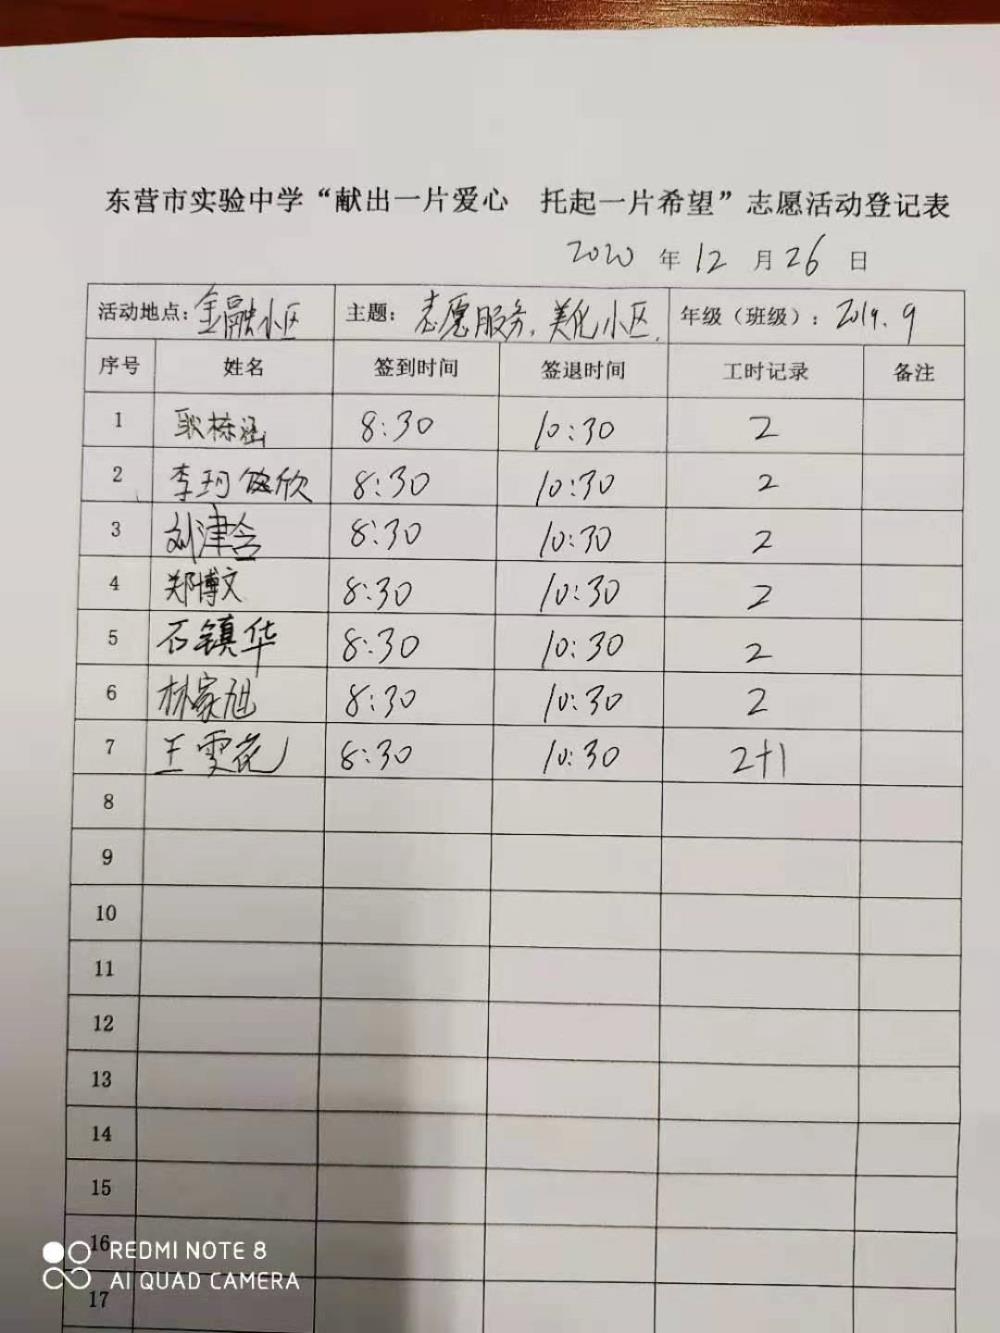 东营市实验中学“献出一片爱心 托起一片希望”志愿活动登记表
2020 年 12 月 26 日
活动地点：金融小区 主题：志愿服务，美化小区. 年级（班级）：2019.9
序号 姓名 签到时间 签退时间 工时记录 备注
1 耿栋涵 8:30 10:30 2
2 李珂欣 8:30 10:30 2
3 刘津含 8:30 10:30 2
4 郑博文 8:30 10:30 2
5 石镇华 8:30 10:30 2
6 林家旭 8:30 10:30 2
7 王雯花 8:30 10:30 2+1
8
9
10
11
12
13
14
15
16
17
REDMI NOTE 8
AI QUAD CAMERA